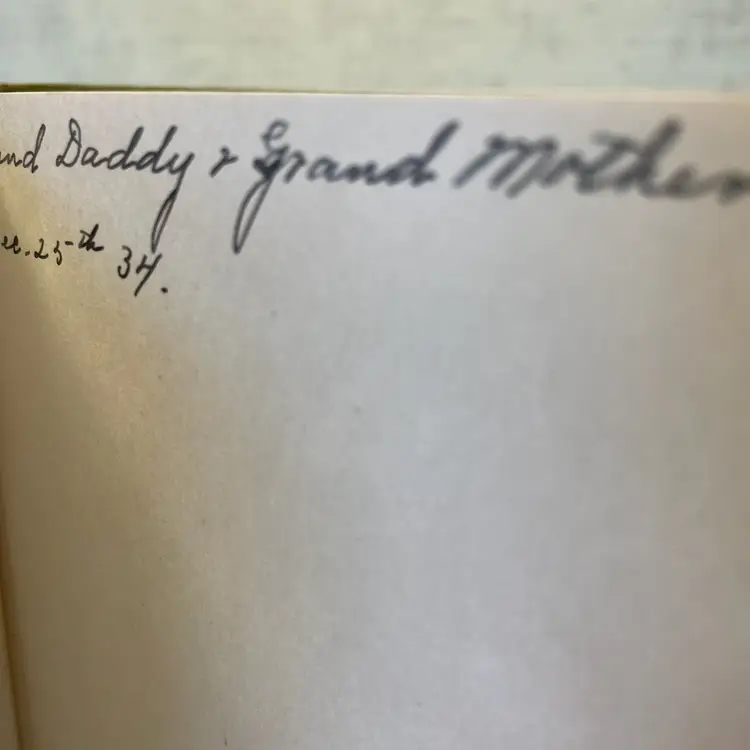 and Daddy & Grand Mother
ec. 25th 34.